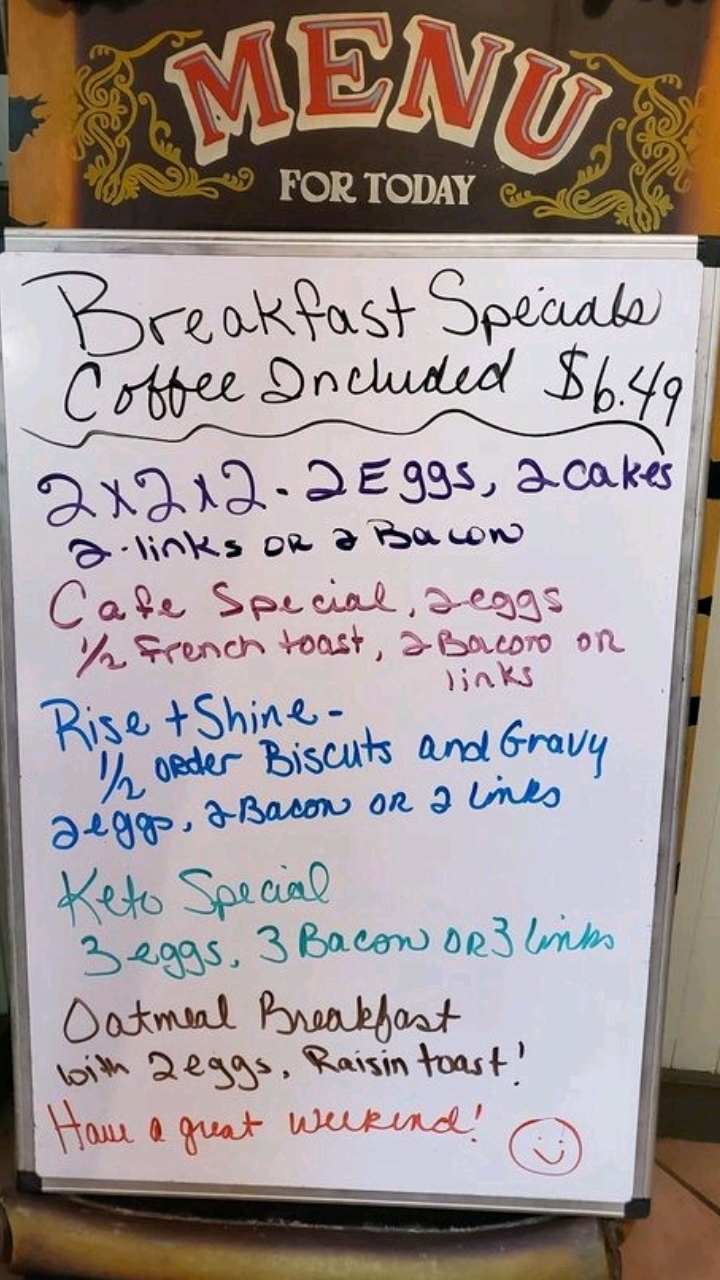 MENU
FOR TODAY
Breakfast Specials
Coffee Included $6.49
2x2x2. 2 Eggs, 2 cakes
2 links OR 2 Bacon
Cafe Special, 2 eggs
1/2 French toast, 2 Bacon OR
links
Rise + Shine -
1/2 order Biscuts and Gravy
2 eggs, 2 Bacon OR 2 links
Keto Special
3 eggs, 3 Bacon OR 3 links
Oatmeal Breakfast
with 2 eggs, Raisin toast!
Have a great weekend!